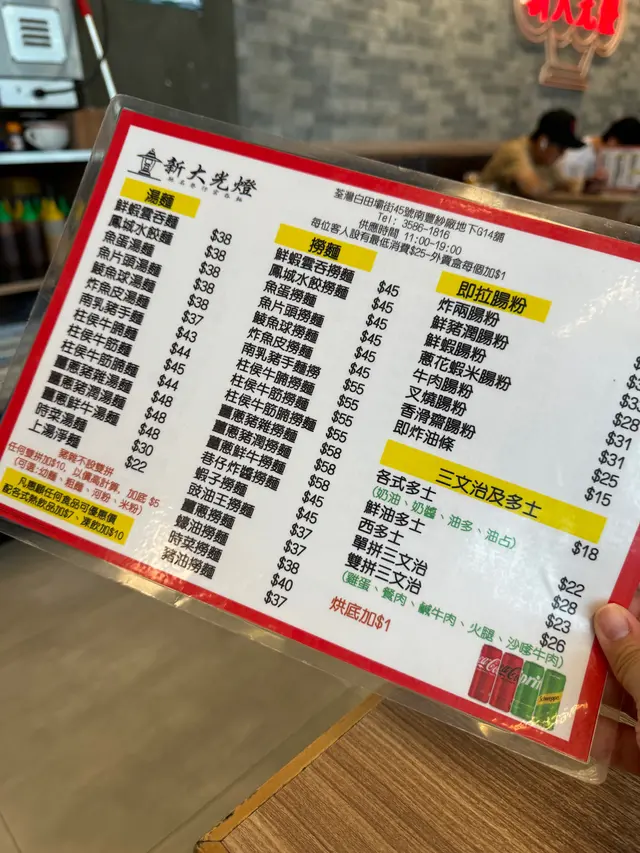 新大光燈
荃灣白田壩街45號南豐紗廠地下G14舖
Tel: 3586-1816
供應時間 11:00-19:00
每位客人設有最低消費$25-外賣盒每個加$1
湯麵
鮮蝦雲吞麵
鳳城水餃麵
魚蛋湯麵
魚片頭湯麵
鯪魚球湯麵
炸魚皮湯麵
南乳豬手麵
柱侯牛腩麵
柱侯牛筋麵
柱侯牛筋腩麵
薑蔥豬雜湯麵
薑蔥豬潤湯麵
薑蔥鮮牛湯麵
時菜湯麵
上湯淨麵
$38
$38
$38
$38
$38
$37
$43
$44
$45
$44
$48
$48
$48
$30
$22
豬雜不設雙拼
任何雙拼加$10, 以價高計算, 加底 $5
(可選:幼麵、粗麵、河粉、米粉)
凡惠顧任何食品可優惠價
配各式熱飲品加$7、凍飲加$10
撈麵
鮮蝦雲吞撈麵
鳳城水餃撈麵
魚蛋撈麵
魚片頭撈麵
鯪魚球撈麵
炸魚皮撈麵
南乳豬手麵撈
柱侯牛腩撈麵
柱侯牛筋撈麵
柱侯牛筋腩撈麵
薑蔥豬雜撈麵
薑蔥豬潤撈麵
薑蔥鮮牛撈麵
巷仔炸醬撈麵
蝦子撈麵
豉油王撈麵
薑蔥撈麵
蠔油撈麵
時菜撈麵
豬油撈麵
$45
$45
$45
$45
$45
$45
$55
$55
$55
$58
$58
$58
$45
$45
$37
$37
$38
$40
$37
即拉腸粉
炸兩腸粉
鮮豬潤腸粉
鮮蝦腸粉
蔥花蝦米腸粉
牛肉腸粉
叉燒腸粉
香滑齋腸粉
即炸油條
$28
$31
$31
$25
$15
三文治及多士
各式多士
(奶油、奶醬、油多、油占)
鮮油多士
西多士
單拼三文治
雙拼三文治
$18
$22
$28
$23
$26
(雞蛋、餐肉、鹹牛肉、火腿、沙嗲牛肉)
烘底加$1